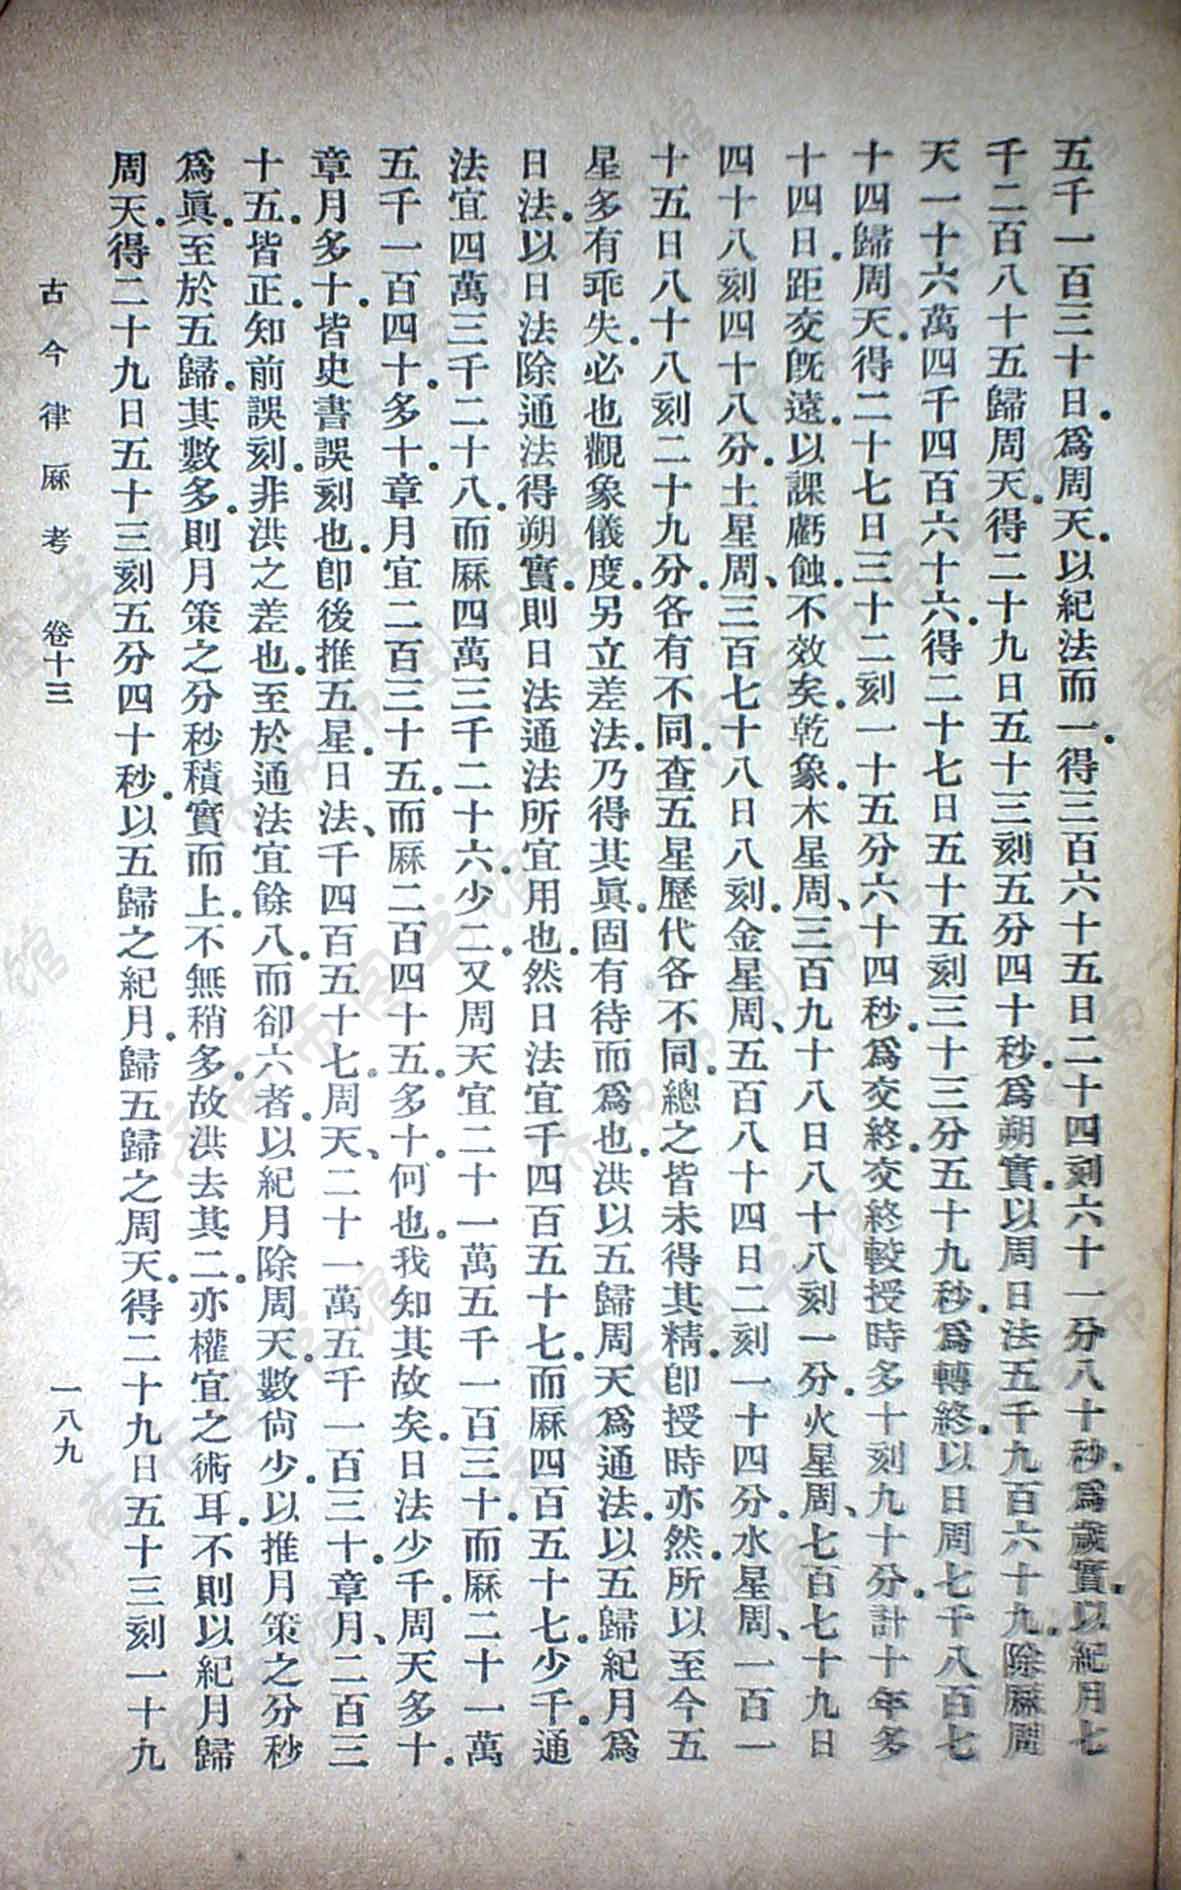 五千一百三十日。爲周天。以紀法而一。得三百六十五日二十四刻六十一分八十秒。爲歲實。以紀月七
千二百八十五歸周天。得二十九日五十三刻五分四十秒。爲朔實。以周日法五千九百六十九。除厤周
天一十六萬四千四百六十六。得二十七日五十五刻三十三分五十九秒。爲轉終。以日周七千八百七
十四歸周天。得二十七日三十二刻一十五分六十四秒。爲交終。交終較授時多十刻九十分。計十年多
十四日。距交旣遠。以課虧蝕。不效矣。乾象。木星周、三百九十八日八十八刻一分。火星周、七百七十九日
四十八刻四十八分。土星周、三百七十八日八刻。金星周、五百八十四日二刻一十四分。水星周、一百一
十五日八十八刻二十九分。各有不同。查五星歷代各不同。總之皆未得其精。卽授時亦然。所以至今五
星多有乖失。必也觀象儀度。另立差法。乃得其眞。固有待而爲也。洪以五歸周天爲通法。以五歸紀月爲
日法。以日法除通法得朔實。則日法通法所宜用也。然日法宜千四百五十七。而厤四百五十七。少千。通
法宜四萬三千二十八。而厤四萬三千二十六。少二。又周天宜二十一萬五千一百三十。而厤二十一萬
五千一百四十。多十。章月宜二百三十五。而厤二百四十五。多十。何也。我知其故矣。日法少千。周天多十。
章月多十。皆史書誤刻也。卽後推五星。日法、千四百五十七。周天、二十一萬五千一百三十。章月、二百三
十五。皆正。知前誤刻。非洪之差也。至於通法宜餘八。而卻六者。以紀月除周天。數尙少。以推月策之分秒
爲眞。至於五歸。其數多。則月策之分秒積實而上。不無稍多。故洪去其二。亦權宜之術耳。不則以紀月歸
周天。得二十九日五十三刻五分四十秒。以五歸之紀月。歸五歸之周天。得二十九日五十三刻一十九
古今律厤考　卷十三
一八九